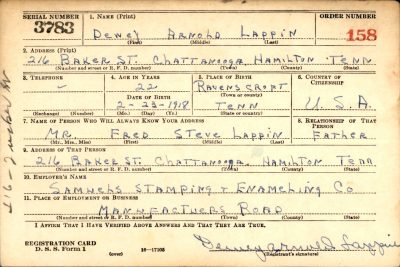 SERIAL NUMBER 1. NAME (Print) ORDER NUMBER
3783 Dewey Arnold Lappin 158
(First) (Middle) (Last)
2. ADDRESS (Print)
216 Baker St. Chattanooga, Hamilton Tenn
(Number and street or R. F. D. number) (Town) (County) (State)
3. TELEPHONE 4. AGE IN YEARS 5. PLACE OF BIRTH 6. COUNTRY OF CITIZENSHIP
- 22 Ravenscroft
DATE OF BIRTH (Town or county)
2-23-1918 Tenn U.S.A.
(Exchange) (Number) (Mo.) (Day) (Yr.) (State or country)
7. NAME OF PERSON WHO WILL ALWAYS KNOW YOUR ADDRESS 8. RELATIONSHIP OF THAT PERSON
Mr. Fred Steve Lappin Father
(Mr., Mrs., Miss) (First) (Middle) (Last)
9. ADDRESS OF THAT PERSON
216 Baker St. Chattanooga, Hamilton Tenn
(Number and street or R. F. D. number) (Town) (County) (State)
10. EMPLOYER'S NAME
Samwehs Stamping + Enameling Co
11. PLACE OF EMPLOYMENT OR BUSINESS
Manufacturers Road
(Number and street or R. F. D. number) (Town) (County) (State)
I AFFIRM THAT I HAVE VERIFIED ABOVE ANSWERS AND THAT THEY ARE TRUE.
REGISTRATION CARD
D. S. S. Form 1 (over) 16-17105 Dewey Arnold Lappin
(Registrant's signature)